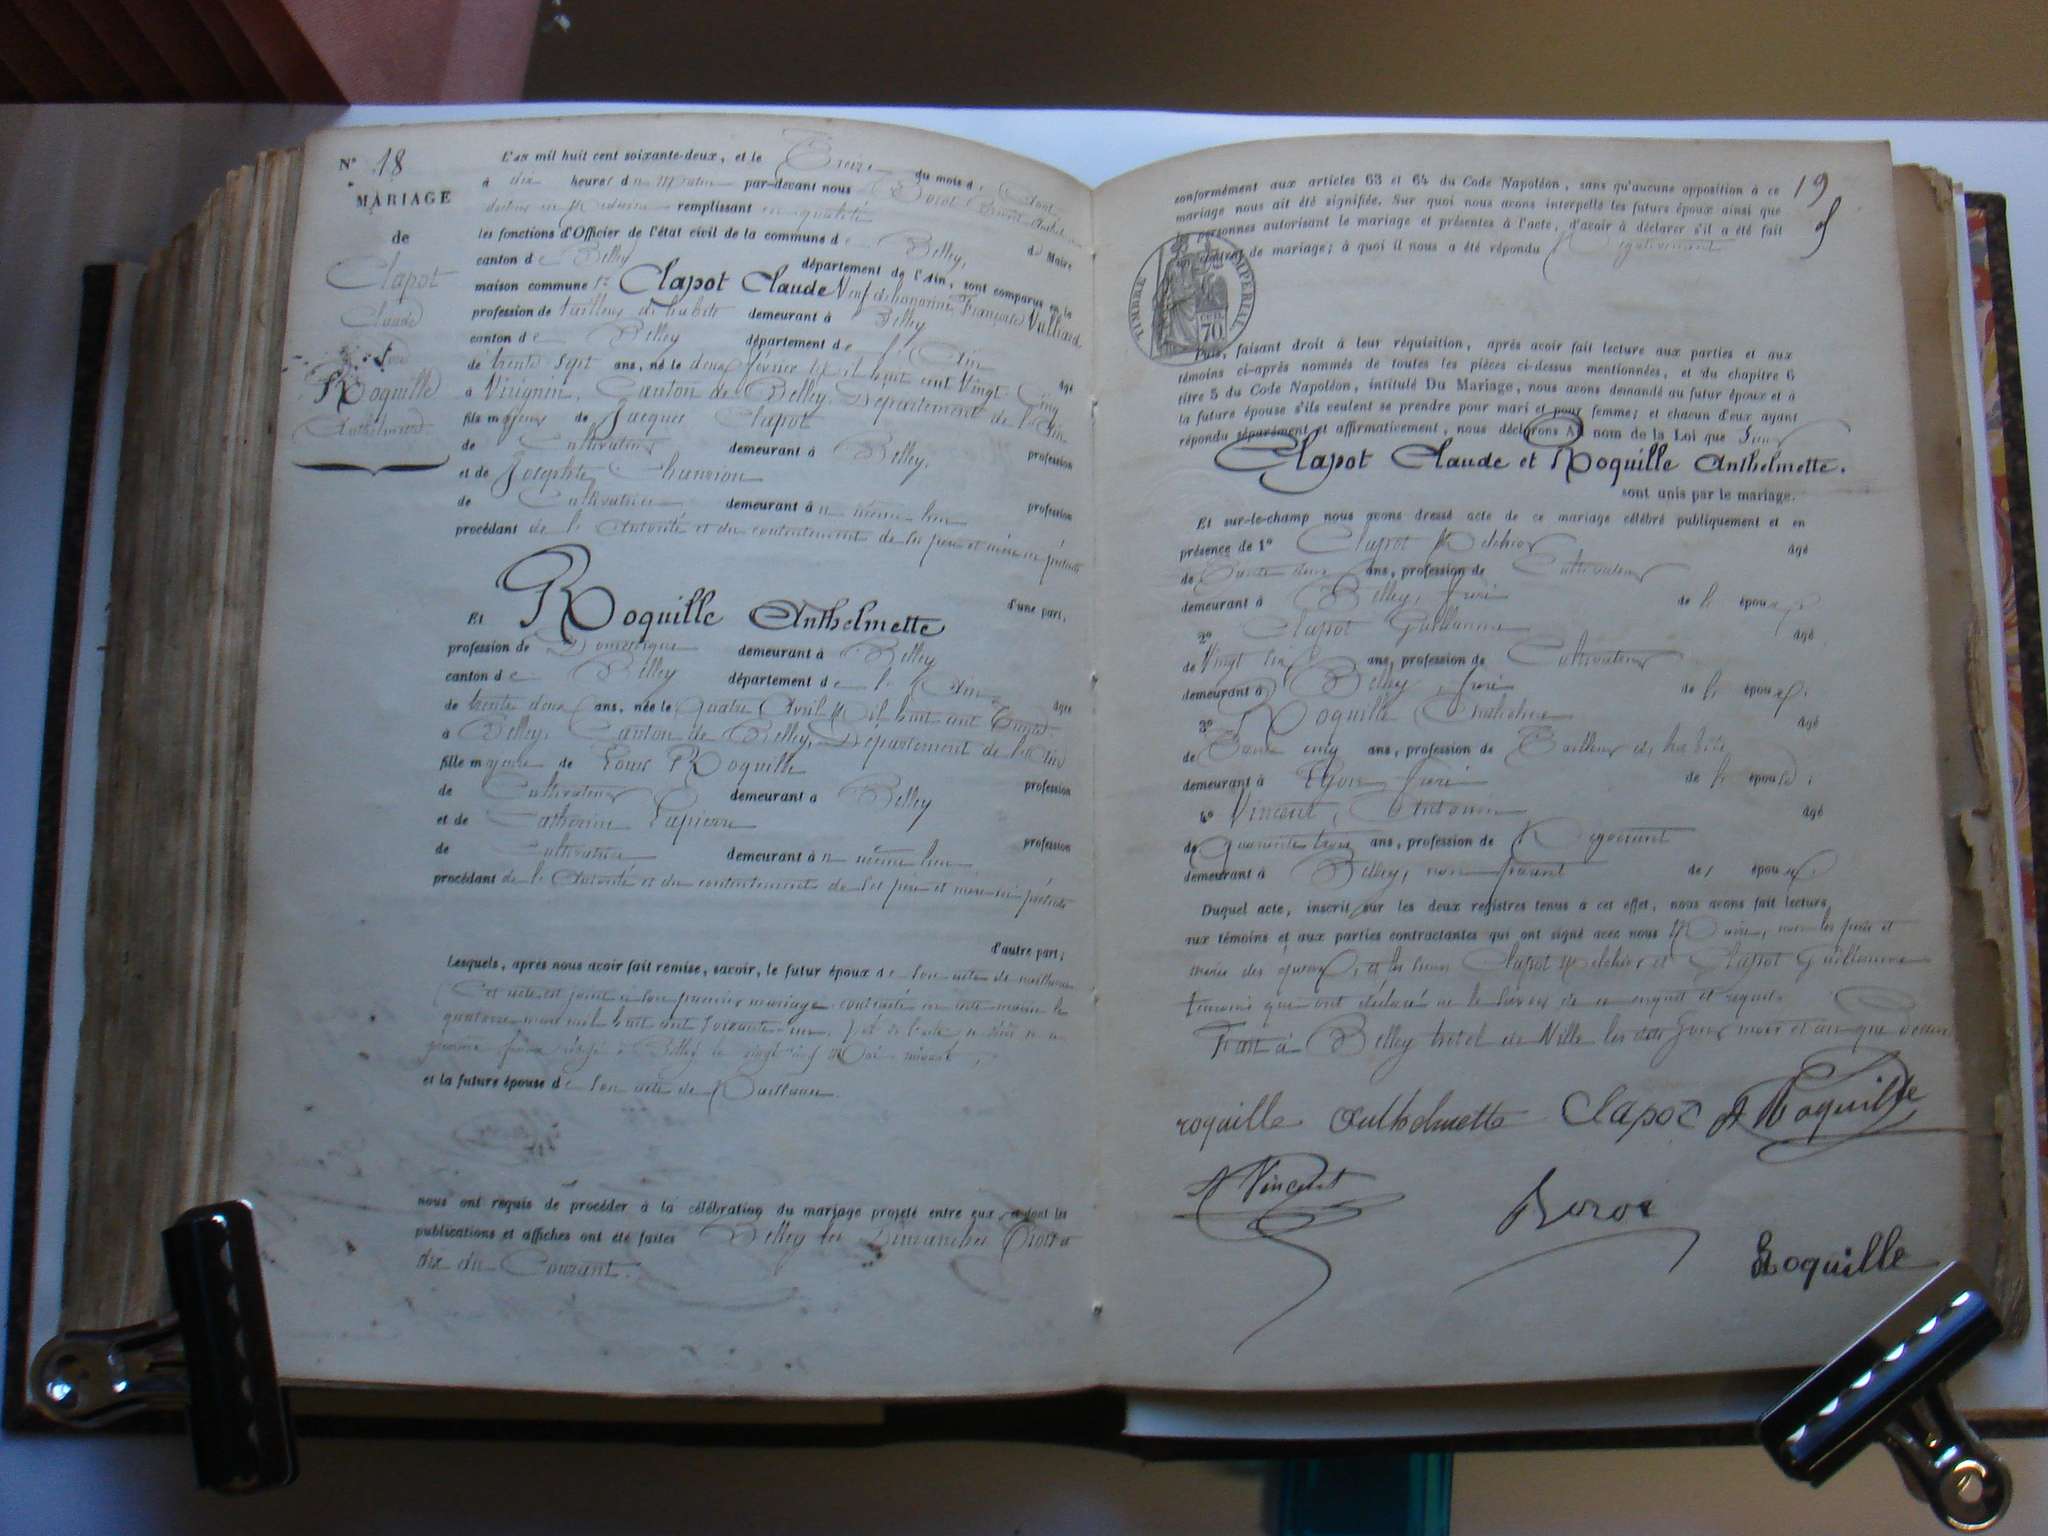 N° 18
MARIAGE
de
Clapot
Claude
Roquille
Anthelmette
L'an mil huit cent soixante-deux, et le Treize du mois d' Août
à dix heures du Matin par-devant nous
docteur en Médecine remplissant en qualité de Maire
les fonctions d'Officier de l'état civil de la commune de Belley,
canton de Belley département de l'Ain, sont comparus en la
maison commune Sr Clapot Claude Veuf de Françoise Vulliard
profession de tailleur d'habits demeurant à Belley
canton de Belley département de l'Ain âgé
de trente sept ans, né le deux février Mil huit cent Vingt Cinq
à Virignin, Canton de Belley, Département de l'Ain
fils majeur de Jacques Clapot profession
de Cultivateur demeurant à Belley,
et de Josephte profession
de Cultivatrice demeurant à même lieu
procédant de l'Autorité et du consentement de ses père et mère ici présents
d'une part,
Et Roquille Anthelmette
profession de Domestique demeurant à Belley
canton de Belley département de l'Ain âgée
de trente deux ans, née le quatre Avril Mil huit cent Trente
à Belley, Canton de Belley, Département de l'Ain
fille majeure de Louis Roquille profession
de Cultivateur demeurant à Belley
et de Catherine Lapierre profession
de Cultivatrice demeurant à même lieu
procédant de l'Autorité et du consentement de ses père et mère ici présents
d'autre part;
Lesquels, après nous avoir fait remise, savoir, le futur époux de son acte de naissance
Cet acte est joint à son premier mariage contracté en cette mairie le
quatorze mil huit cent soixante de l'acte de décès de sa
première à Belley le vingt Mai
et la future épouse de son acte de Naissance
nous ont requis de procéder à la célébration du mariage projeté entre eux, et dont les
publications et affiches ont été faites Belley les Dimanches Trois et
dix du Courant.
19
conformément aux articles 63 et 64 du Code Napoléon, sans qu'aucune opposition à ce
mariage nous ait été signifiée. Sur quoi nous avons interpellé les futurs époux ainsi que
les personnes autorisant le mariage et présentes à l'acte, d'avoir à déclarer s'il a été fait
un contrat de mariage; à quoi il nous a été répondu Négativement
TIMBRE IMPÉRIAL
70
Puis, faisant droit à leur réquisition, après avoir fait lecture aux parties et aux
témoins ci-après nommés de toutes les pièces ci-dessus mentionnées, et du chapitre 6
titre 5 du Code Napoléon, intitulé Du Mariage, nous avons demandé au futur époux et à
la future épouse s'ils veulent se prendre pour mari et pour femme; et chacun d'eux ayant
répondu séparément et affirmativement, nous déclarons Au nom de la Loi que Sieur
Clapot Claude et Roquille Anthelmette.
sont unis par le mariage.
Et sur-le-champ nous avons dressé acte de ce mariage célébré publiquement et en
présence de 1° Clapot Melchior âgé
de Trente deux ans, profession de Cultivateur
demeurant à Belley, frère de l' époux
2° Clapot Guillaume âgé
de Vingt six ans, profession de Cultivateur
demeurant à Belley frère de l' époux,
3° Roquille Anthelme âgé
de Trente cinq ans, profession de Tailleur d'habits
demeurant à Lyon frère de l' épouse,
4° Vincent, Antoine âgé
de Quarante trois ans, profession de Négociant
demeurant à Belley, non parent des époux.
Duquel acte, inscrit sur les deux registres tenus à cet effet, nous avons fait lecture
aux témoins et aux parties contractantes qui ont signé avec nous Maire, non les père et
mère des époux, et les sieurs Clapot Melchior et Clapot Guillaume
témoins qui ont déclaré ne le savoir de ce enquis et requis.
Fait à Belley hotel de Ville les dits jour, mois et an que dessus
roquille Anthelmette Clapot A Roquille
A Vincent
Roquille